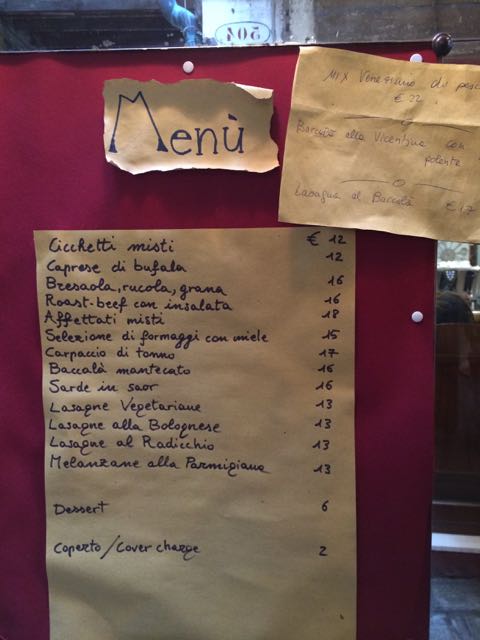 Menù
Mix Veneziano di pesc
€ 22
Baccalà alla Vicentina con
polenta
Lasagna al Baccalà € 17
Cicchetti misti € 12
Caprese di bufala 12
Bresaola, rucola, grana 16
Roast-beef con insalata 16
Affettati misti 18
Selezione di formaggi con miele 15
Carpaccio di tonno 17
Baccalà mantecato 16
Sarde in saor 16
Lasagne Vegetariane 13
Lasagne alla Bolognese 13
Lasagne al Radicchio 13
Melanzane alla Parmigiana 13
Dessert 6
Coperto/Cover charge 2